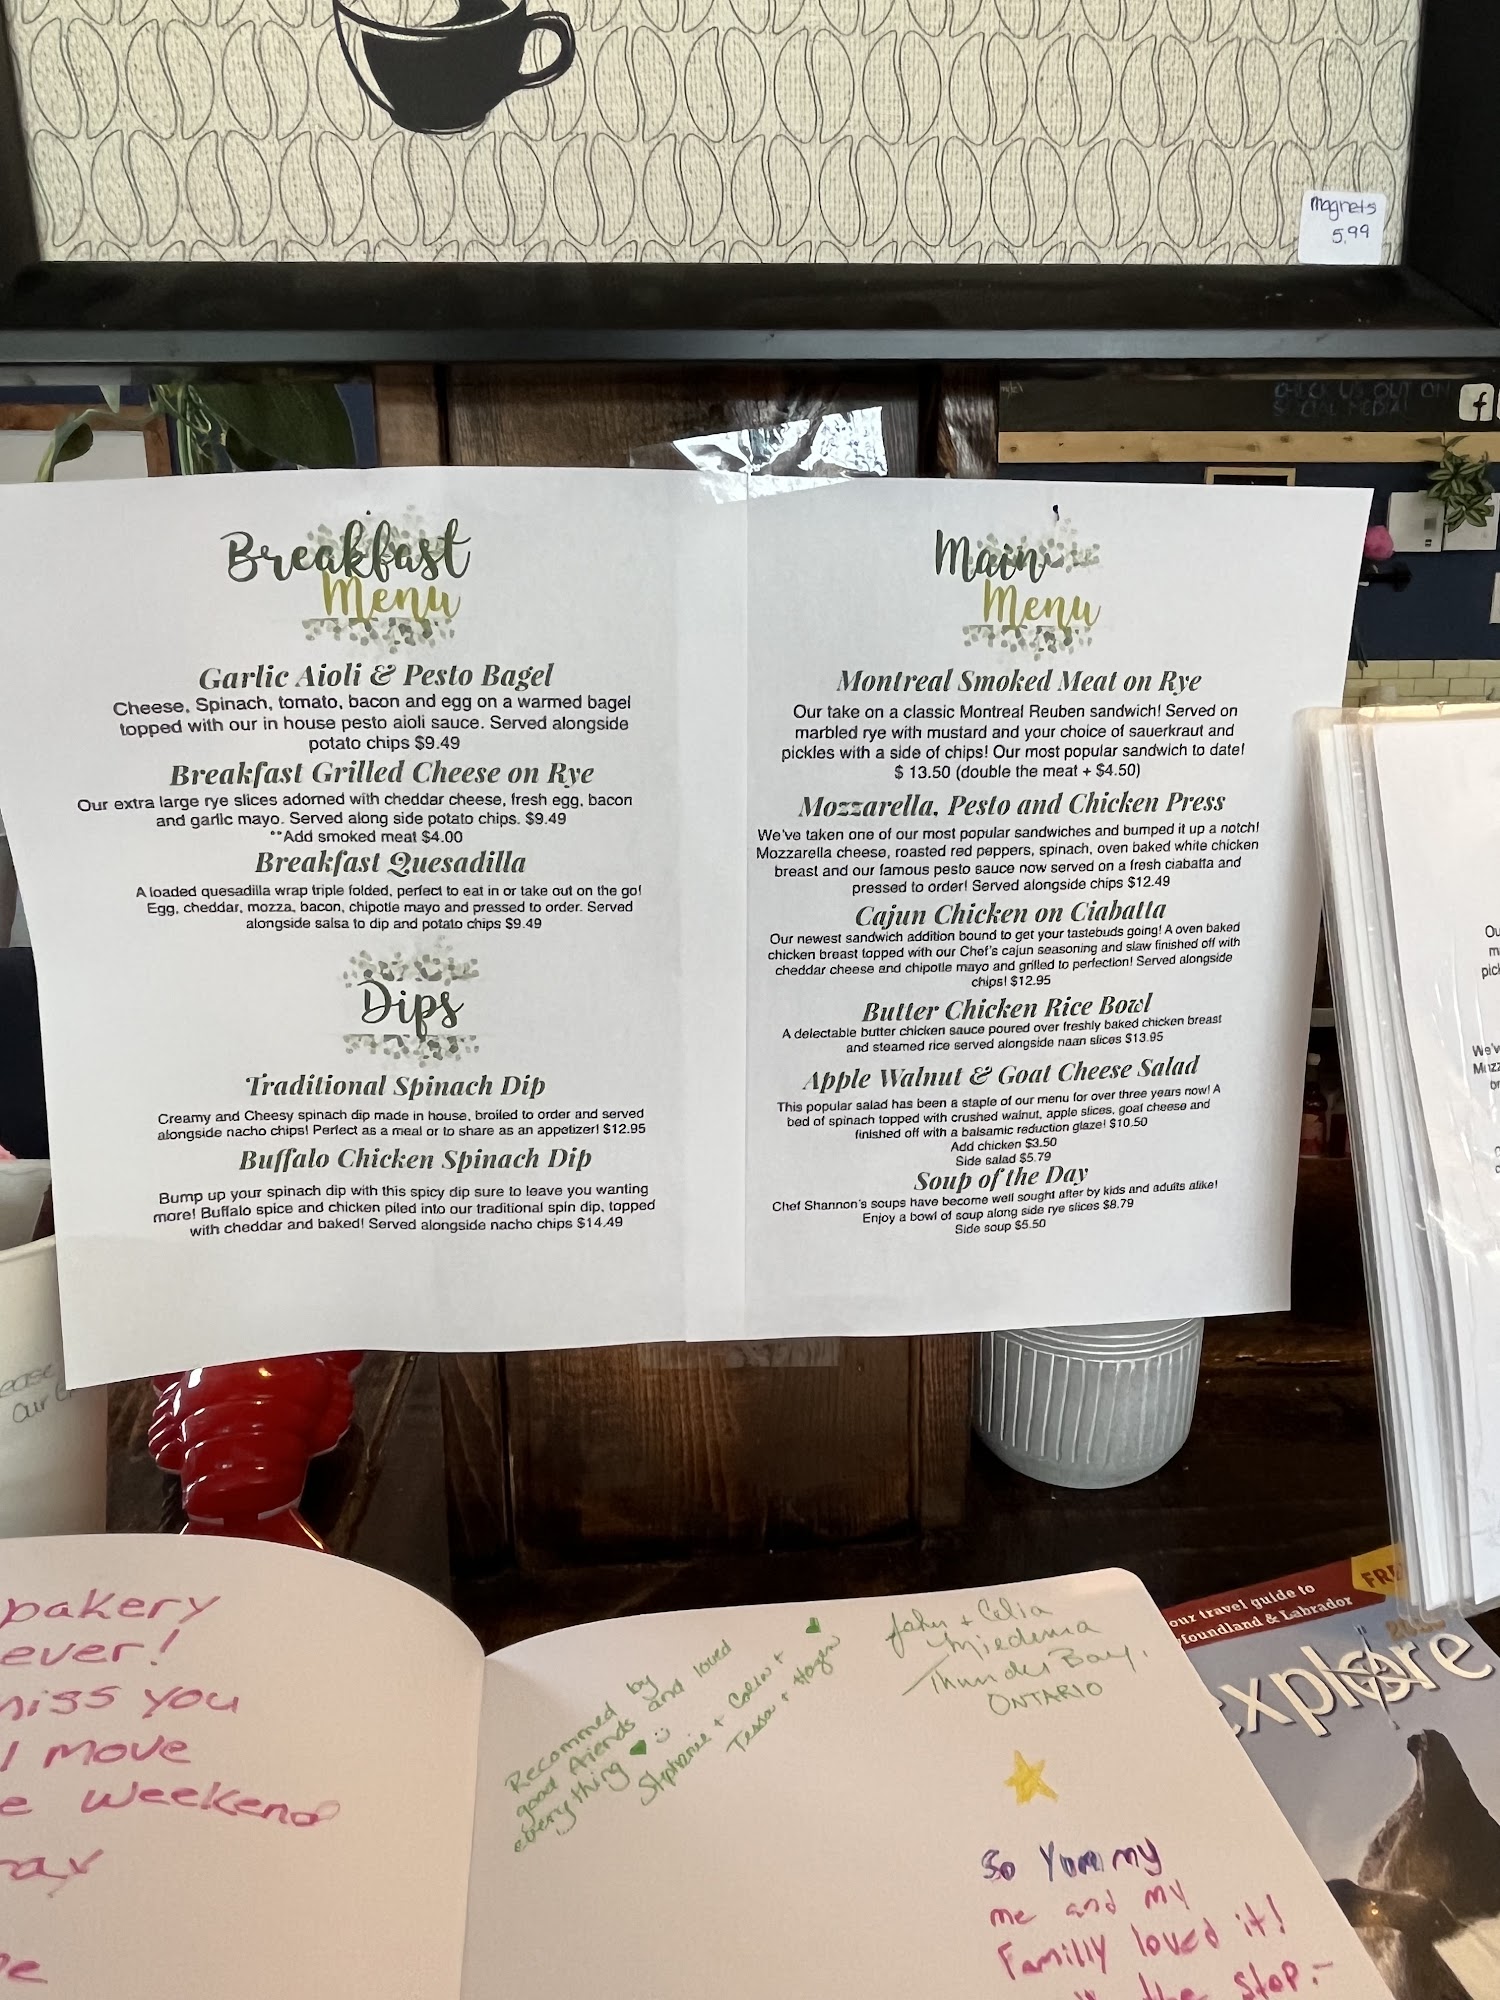 magnets
5.99
CHECK US OUT ON
SOCIAL MEDIA!
f
Breakfast
Menu
Garlic Aioli & Pesto Bagel
Cheese, Spinach, tomato, bacon and egg on a warmed bagel
topped with our in house pesto aioli sauce. Served alongside
potato chips $9.49
Breakfast Grilled Cheese on Rye
Our extra large rye slices adorned with cheddar cheese, fresh egg, bacon
and garlic mayo. Served along side potato chips. $9.49
**Add smoked meat $4.00
Breakfast Quesadilla
A loaded quesadilla wrap triple folded, perfect to eat in or take out on the go!
Egg, cheddar, mozza, bacon, chipotle mayo and pressed to order. Served
alongside salsa to dip and potato chips $9.49
Dips
Traditional Spinach Dip
Creamy and Cheesy spinach dip made in house, broiled to order and served
alongside nacho chips! Perfect as a meal or to share as an appetizer! $12.95
Buffalo Chicken Spinach Dip
Bump up your spinach dip with this spicy dip sure to leave you wanting
more! Buffalo spice and chicken piled into our traditional spin dip, topped
with cheddar and baked! Served alongside nacho chips $14.49
Main
Menu
Montreal Smoked Meat on Rye
Our take on a classic Montreal Reuben sandwich! Served on
marbled rye with mustard and your choice of sauerkraut and
pickles with a side of chips! Our most popular sandwich to date!
$ 13.50 (double the meat + $4.50)
Mozzarella, Pesto and Chicken Press
We've taken one of our most popular sandwiches and bumped it up a notch!
Mozzarella cheese, roasted red peppers, spinach, oven baked white chicken
breast and our famous pesto sauce now served on a fresh ciabatta and
pressed to order! Served alongside chips $12.49
Cajun Chicken on Ciabatta
Our newest sandwich addition bound to get your tastebuds going! A oven baked
chicken breast topped with our Chef's cajun seasoning and slaw finished off with
cheddar cheese and chipotle mayo and grilled to perfection! Served alongside
chips! $12.95
Butter Chicken Rice Bowl
A delectable butter chicken sauce poured over freshly baked chicken breast
and steamed rice served alongside naan slices $13.95
Apple Walnut & Goat Cheese Salad
This popular salad has been a staple of our menu for over three years now! A
bed of spinach topped with crushed walnut, apple slices, goat cheese and
finished off with a balsamic reduction glaze! $10.50
Add chicken $3.50
Side salad $5.79
Soup of the Day
Chef Shannon's soups have become well sought after by kids and adults alike!
Enjoy a bowl of soup along side rye slices $8.79
Side soup $5.50
Ou
pick
We'v
Mozz
ease
our
bakery
ever!
miss you
I move
e weekend
Recommed by
good friends and loved
everything
Stephanie + Colin +
Tessa + Hagen
John + Celia
Miedema
Thunder Bay,
ONTARIO
So Yummy
me and my
Familly loved it!
the stop.
FRE
our travel guide to
foundland & Labrador
explore